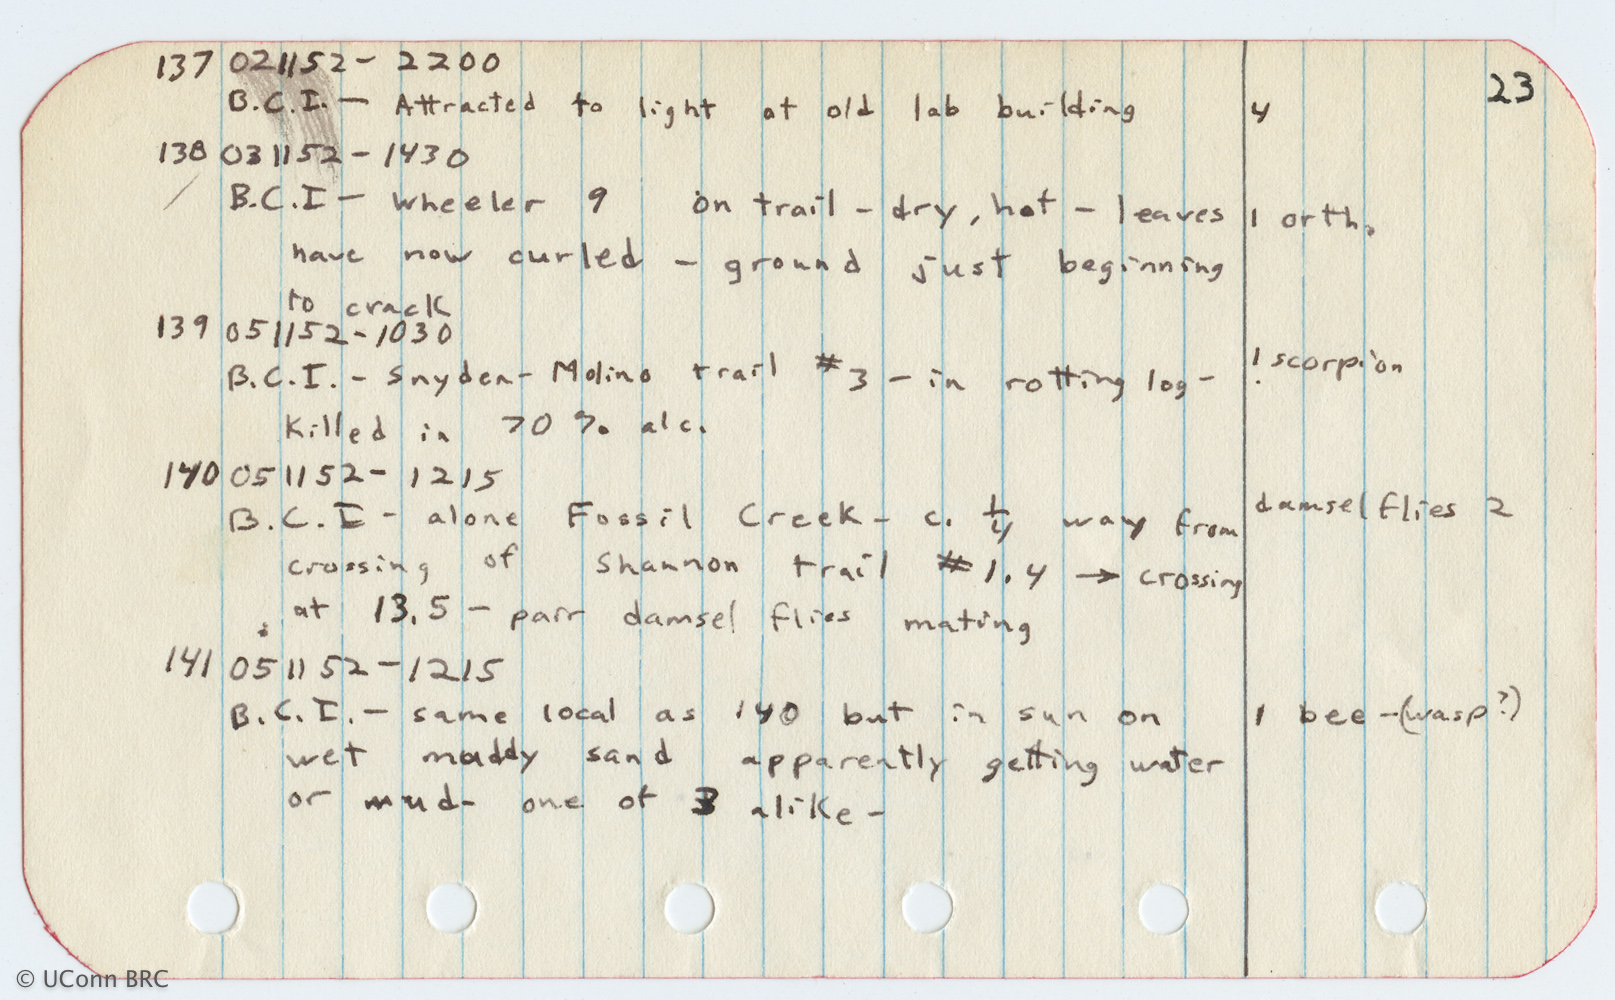 23
137 021152- 2200
B.C.I. - Attracted to light at old lab building 4
138 031152-1430
B.C.I - Wheeler 9 on trail - dry, hot - leaves 1 orth.
have now curled - ground just beginning
to crack
139 051152-1030
B.C.I. - Snyder-Molino trail #3 - in rotting log- 1 scorpion
Killed in 70% alc.
140 051152- 1215
B.C.I - alone Fossil Creek- c. 1/4 way from damsel flies 2
crossing of Shannon trail #1.4 → crossing
at 13.5 - pair damsel flies mating
141 051152-1215
B.C.I. - same local as 140 but in sun on 1 bee -(wasp?)
wet muddy sand apparently getting water
or mud- one of 3 alike -
© UConn BRC